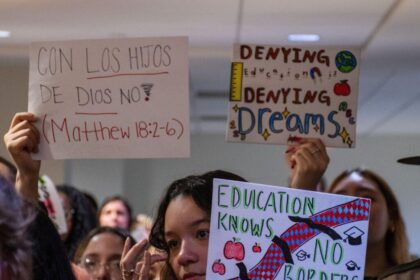 CON LOS HIJOS
DE DIOS NO!
(Matthew 18:2-6)
DENYING
Education is
DENYING
Dreams
EDUCATION
KNOWS
NO
BORDERS